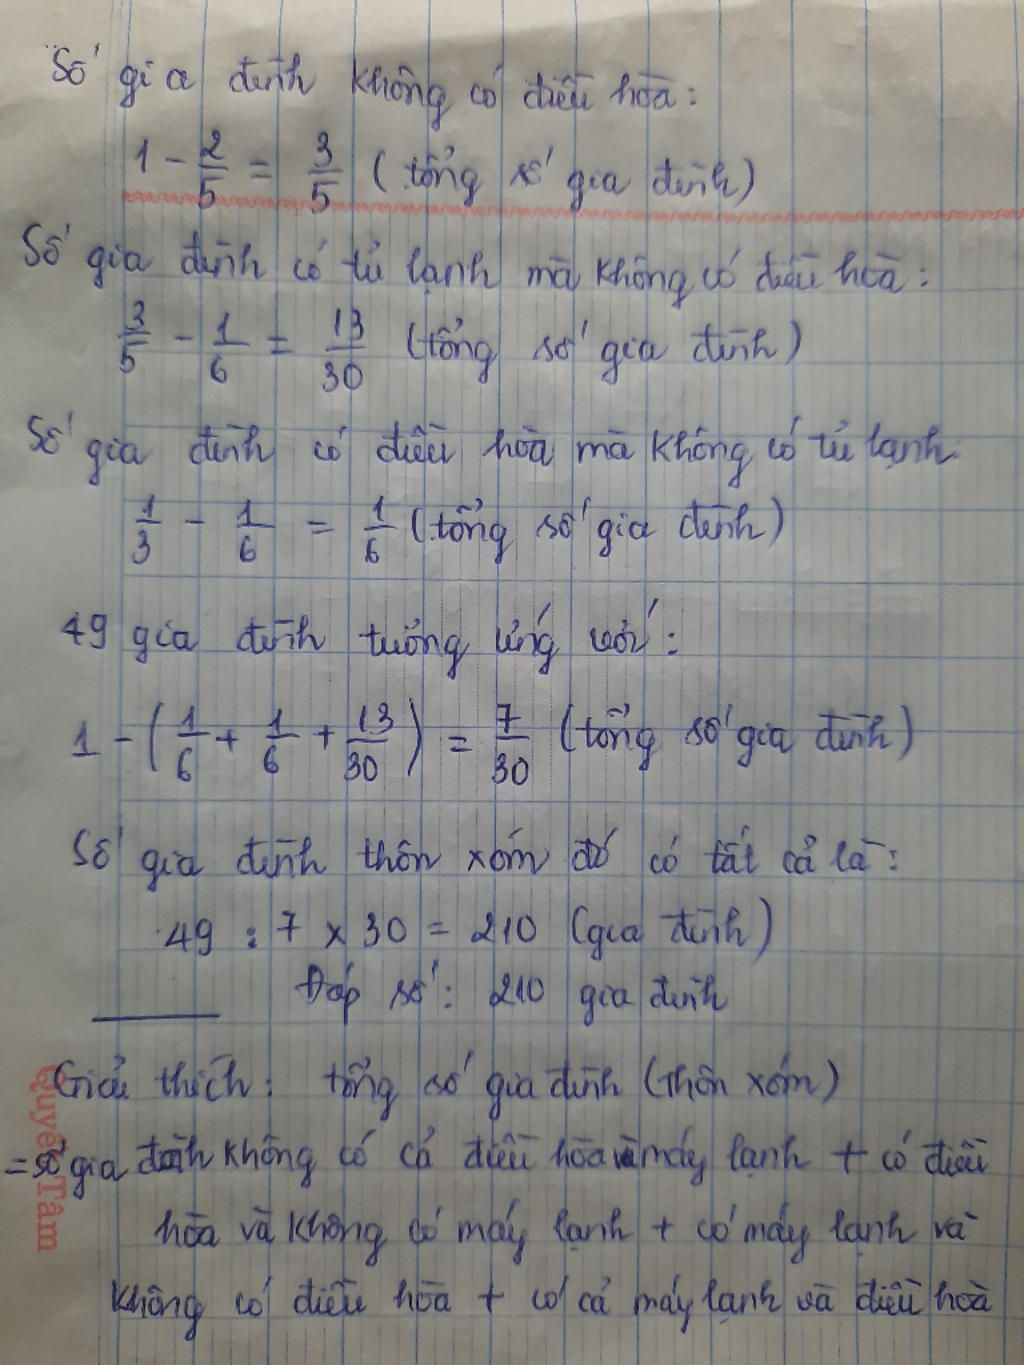 Số gia đình không có điều hòa:
1 - 2/5 = 3/5 (tổng số gia đình)
Số gia đình có tủ lạnh mà không có điều hòa:
3/5 - 1/6 = 13/30 (tổng số gia đình)
Số gia đình có điều hòa mà không có tủ lạnh
1/3 - 1/6 = 1/6 (tổng số gia đình)
49 gia đình tương ứng với:
1 - (1/6 + 1/6 + 13/30) = 7/30 (tổng số gia đình)
Số gia đình thôn xóm đó có tất cả là:
49 : 7 x 30 = 210 (gia đình)
Đáp số: 210 gia đình
Giải thích: tổng số gia đình (thôn xóm)
= số gia đình không có cả điều hòa và máy lạnh + có điều
hòa và không có máy lạnh + có máy lạnh và
không có điều hòa + có cả máy lạnh và điều hòa
Quyết Tâm